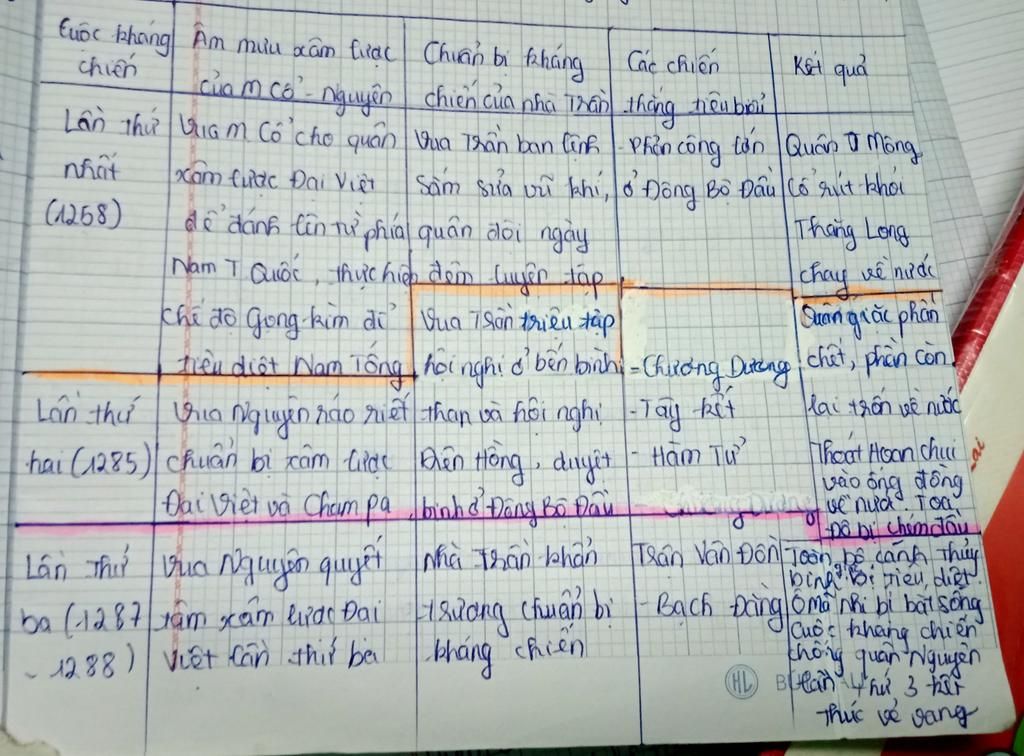 Cuộc kháng
chiến
Âm mưu xâm lược
của m cổ - Nguyên
Chuẩn bị kháng
chiến của nhà Trần
Các chiến
thắng tiêu biểu
Kết quả
Lần thứ
nhất
(1258)
Vua m Cổ cho quân
xâm lược Đại Việt
để đánh lên từ phía
Nam T Quốc, thực hiện
chế độ Gọng kìm để
tiêu diệt Nam Tống
Vua Trần ban lệnh
sắm sửa vũ khí,
quân đội ngày
đêm luyện tập
- Phản công lớn
ở Đông Bộ Đầu
Quân Mông
Cổ rút khỏi
Thăng Long
chạy về nước
Lần thứ
hai (1285)
Vua Nguyên ráo riết
chuẩn bị xâm lược
Đại Việt và Cham pa
Vua Trần triệu tập
hội nghị ở bến bình
than và hội nghị
Diên Hồng, duyệt
binh ở Đông Bộ Đầu
- Chương Dương
- Tây kết
- Hàm Tử
Quân giặc phần
chết, phần còn
lại trốn về nước
Thoát Hoan chui
vào ống đồng
về nước Toa
Đô bị chém đầu
Lần thứ
ba (1287
- 1288)
Vua Nguyên quyết
tâm xâm lược Đại
Việt lần thứ ba
Nhà Trần khẩn
trương chuẩn bị
kháng chiến
Trần Vân Đồn
- Bạch Đằng
Toàn bộ cánh thủy
binh bị tiêu diệt.
Ô mã nhi bị bắt sống
Cuộc kháng chiến
chống quân Nguyên
lần thứ 3 kết
thúc vẻ vang
HL